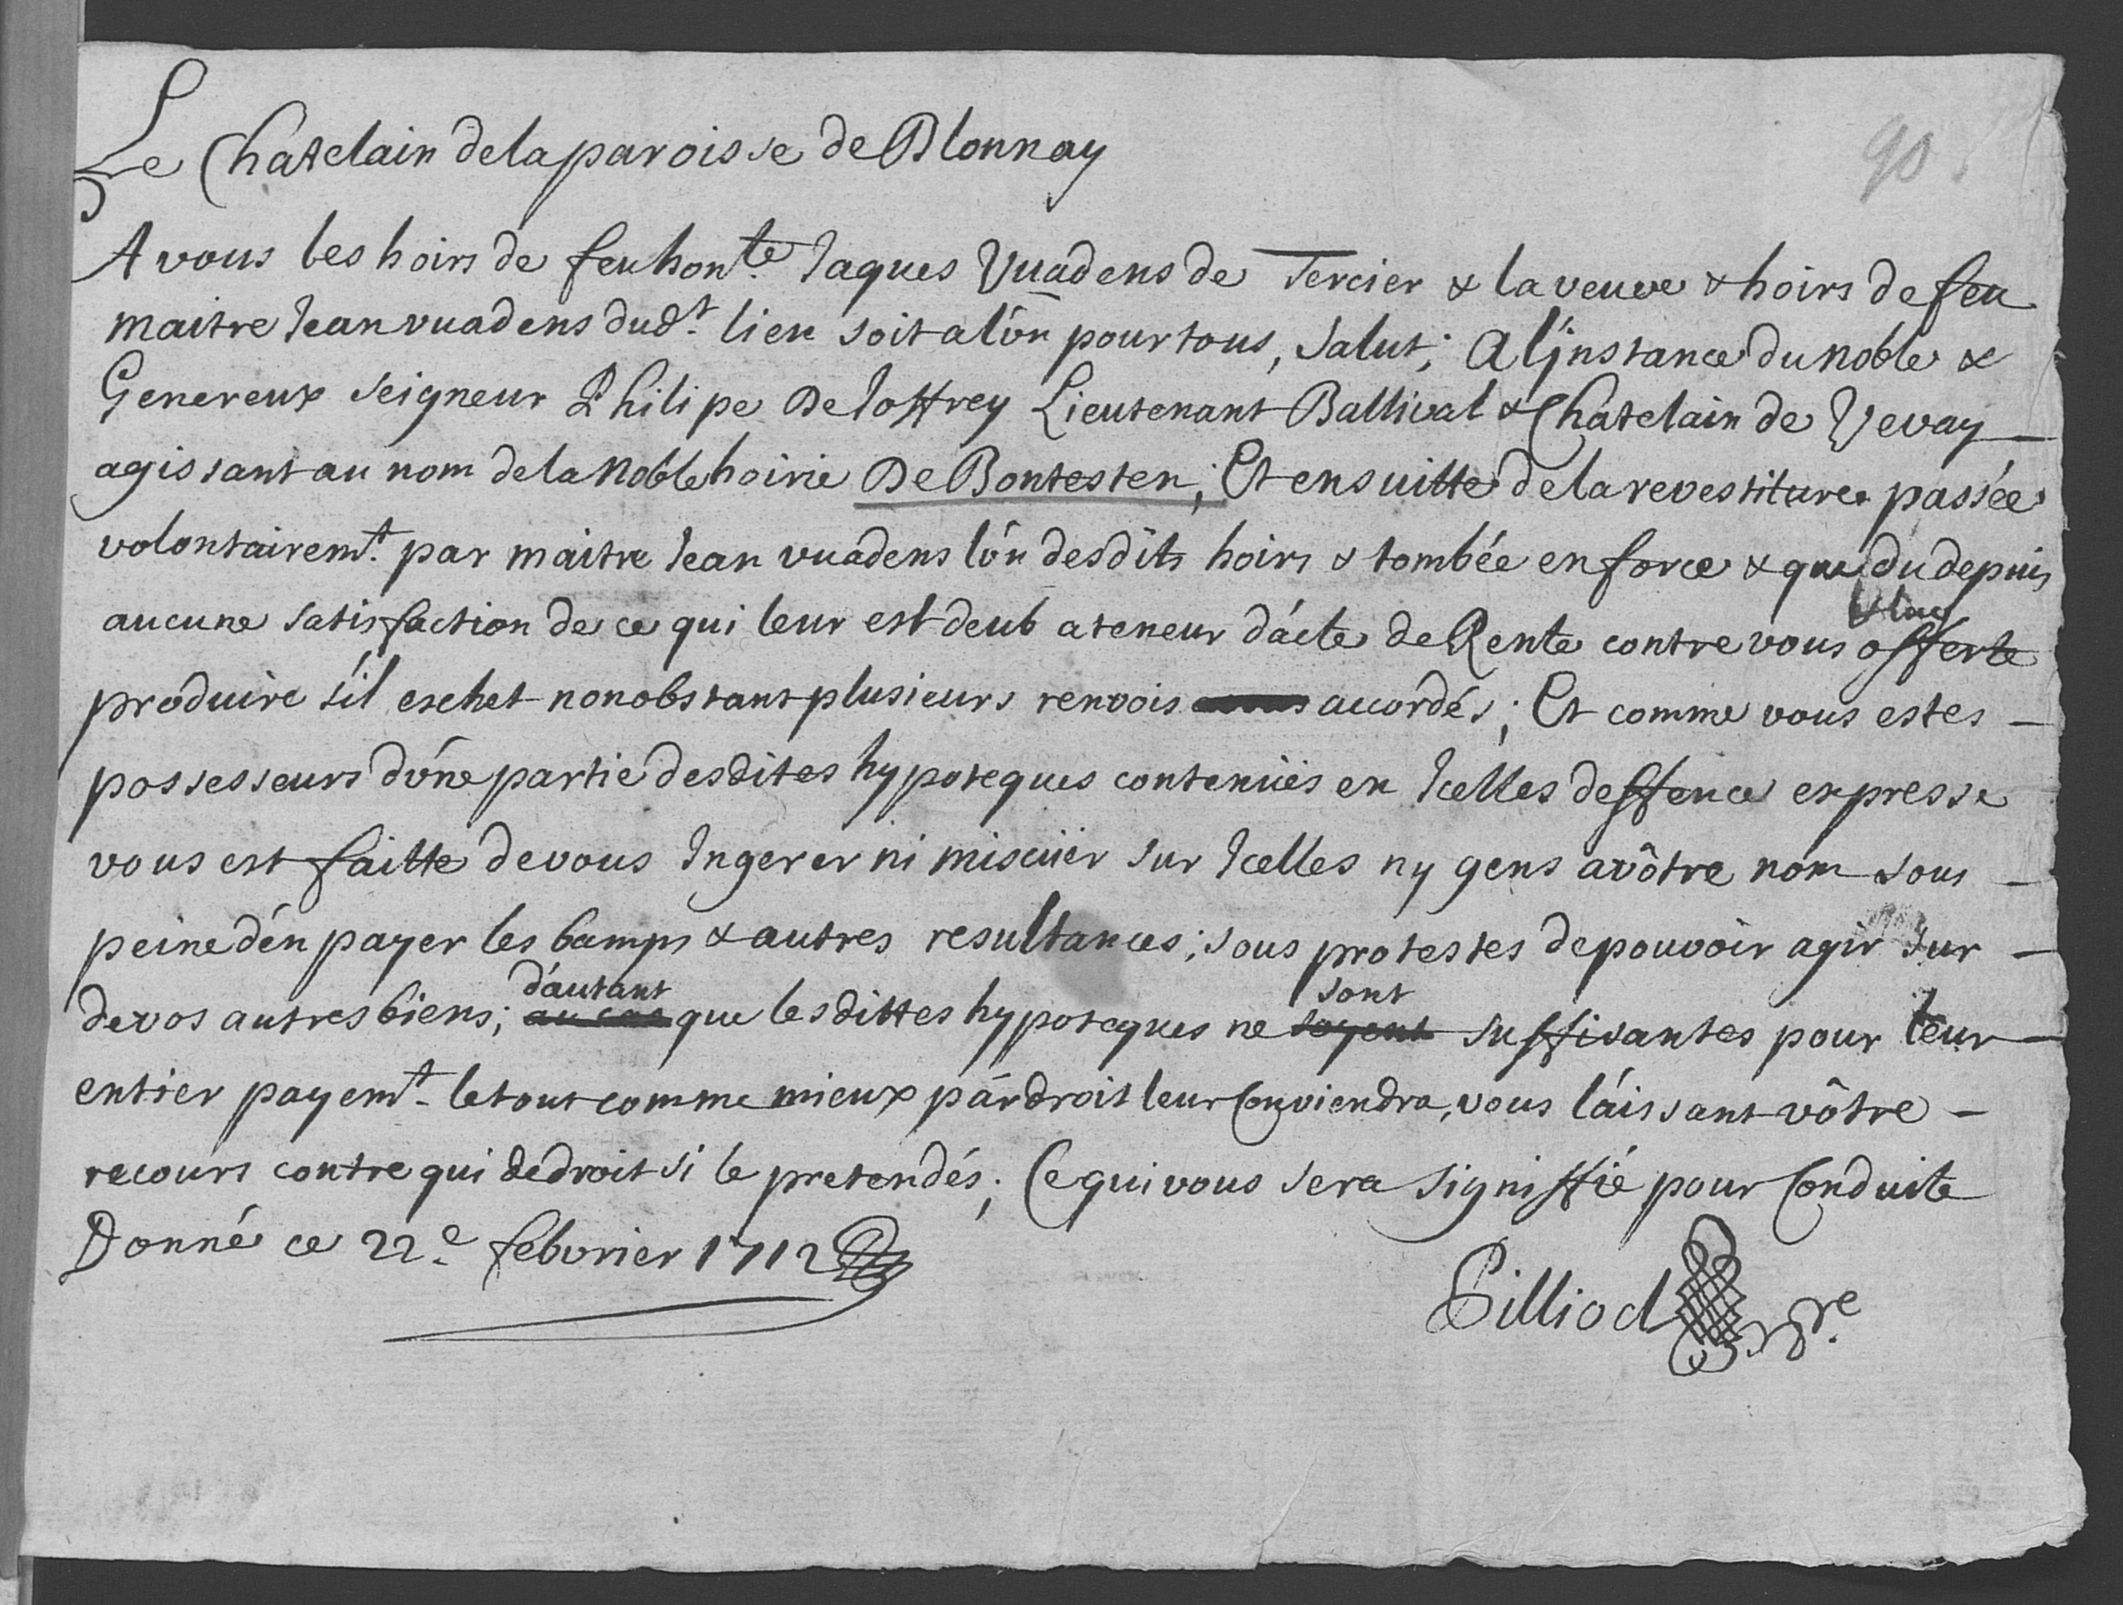 90
Le Chatelain de la paroisse de Blonnay
A vous les hoirs de feu hon.te Jaques Vuadens de Tercier & la veuve & hoirs de feu
maitre Jean vuadens dud.t lieu soit a l'ún pour tous, salut; A l'jnstance du noble &
Genereux seigneur Philipe De Joffrey Lieutenant Ballival & Chatelain de Vevay
agissant au nom de la Noble hoirie De Bontesten; Et ensuitte de la revestiture passée
volontairem.t par maitre Jean vuadens l'ún desdits hoirs & tombée en force & que du depuis
aucune satisfaction de ce qui leur est deub a teneur d'acte de Rente contre vous offerte
produire s'il eschet nonobstant plusieurs renvois accordés; Et comme vous estes
possesseurs d'úne partie desdites hypoteques contenües en Jcelles deffence expresse
vous est faitte de vous Jngerer ni miscüer sur Jcelles ny gens a vôtre nom sous
peine d'én payer les bamps & autres resultances; sous protestes de pouvoir agir sur
d'autant sont
de vos autres biens; au cas que lesdittes hypoteques ne soyent suffisantes pour leur
entier payem.t le tout comme mieux par droit leur Conviendra, vous laissant vôtre
recours contre qui de droit si le pretendés; Ce qui vous sera signiffié pour Conduite
Donné ce 22.e febvrier 1712
Pilliod